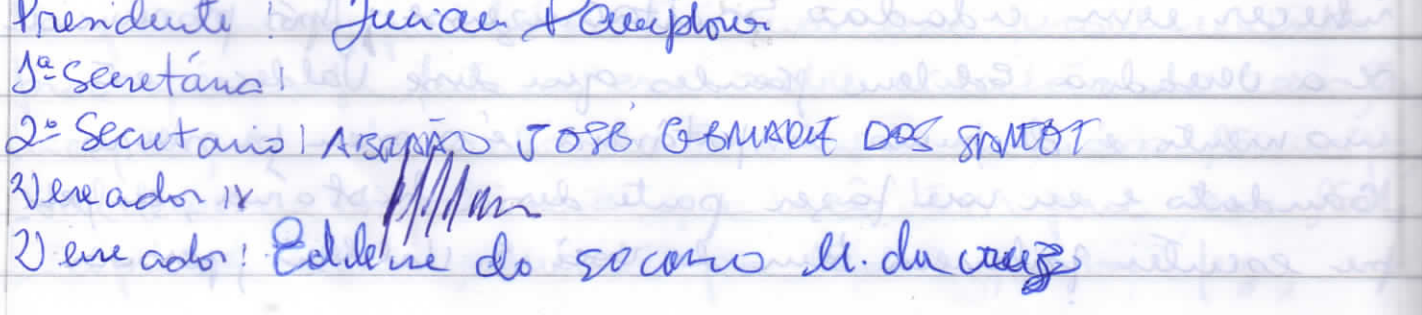 Presidente: Juciane Pamplona
1ª Secretária:
2º Secretario: ABRAÃO JOSÉ DOS SANTOS
Vereador:
Vereador: Edilene do socorro M. da cruz